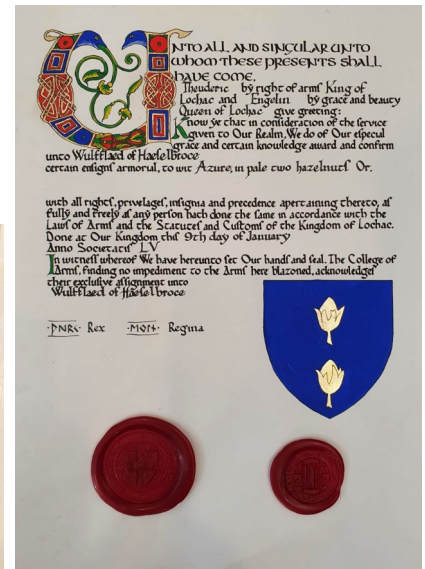 UNTO ALL AND SINGULAR UNTO
WHOM THESE PRESENTS SHALL
HAVE COME,
Theuderic by right of arms King of
Lochac and Engelin by grace and beauty
Queen of Lochac give greeting:
Know ye that in consideration of the service
given to Our Realm, We do of Our especial
grace and certain knowledge award and confirm
unto Wulfflaed of Haeselbroce
certain ensigns armorial, to wit Azure, in pale two hazelnuts Or.
with all rights, privelages, insignia and precedence apertaining thereto, as
fully and freely as any person hath done the same in accordance with the
Laws of Arms and the Statutes and Customs of the Kingdom of Lochac.
Done at Our Kingdom this 9th day of January
Anno Societatis LV
In witness whereof We have hereunto set Our hands and seal. The College of
Arms, finding no impediment to the Arms here blazoned, acknowledges
their exclusive assignment unto
Wulfflaed of Haeselbroce
Rex Regina